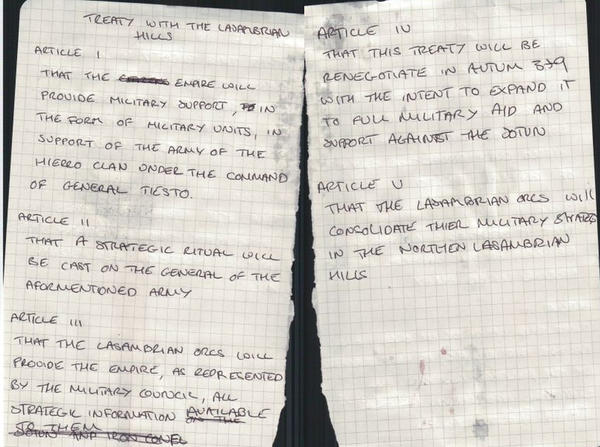 TREATY WITH THE LASAMBRIAN
HILLS
ARTICLE I
THAT THE EMPIRE WILL
PROVIDE MILITARY SUPPORT, IN
THE FORM OF MILITARY UNITS, IN
SUPPORT OF THE ARMY OF THE
HIERRO CLAN UNDER THE COMMAND
OF GENERAL TIESTO.
ARTICLE II
THAT A STRATEGIC RITUAL WILL
BE CAST ON THE GENERAL OF THE
AFORMENTIONED ARMY
ARTICLE III
THAT THE LASAMBRIAN ORCS WILL
PROVIDE THE EMPIRE, AS REPRESENTED
BY THE MILITARY COUNCIL, ALL
STRATEGIC INFORMATION AVAILABLE
TO THEM ON THE
JOTUN AND IRON
ARTICLE IV
THAT THIS TREATY WILL BE
RENEGOTIATE IN AUTUM 379
WITH THE INTENT TO EXPAND IT
TO FULL MILITARY AID AND
SUPPORT AGAINST THE JOTUN
ARTICLE V
THAT THE LASAMBRIAN ORCS WILL
CONSOLIDATE THIER MILITARY
IN THE NORTHEN LASAMBRIAN
HILLS